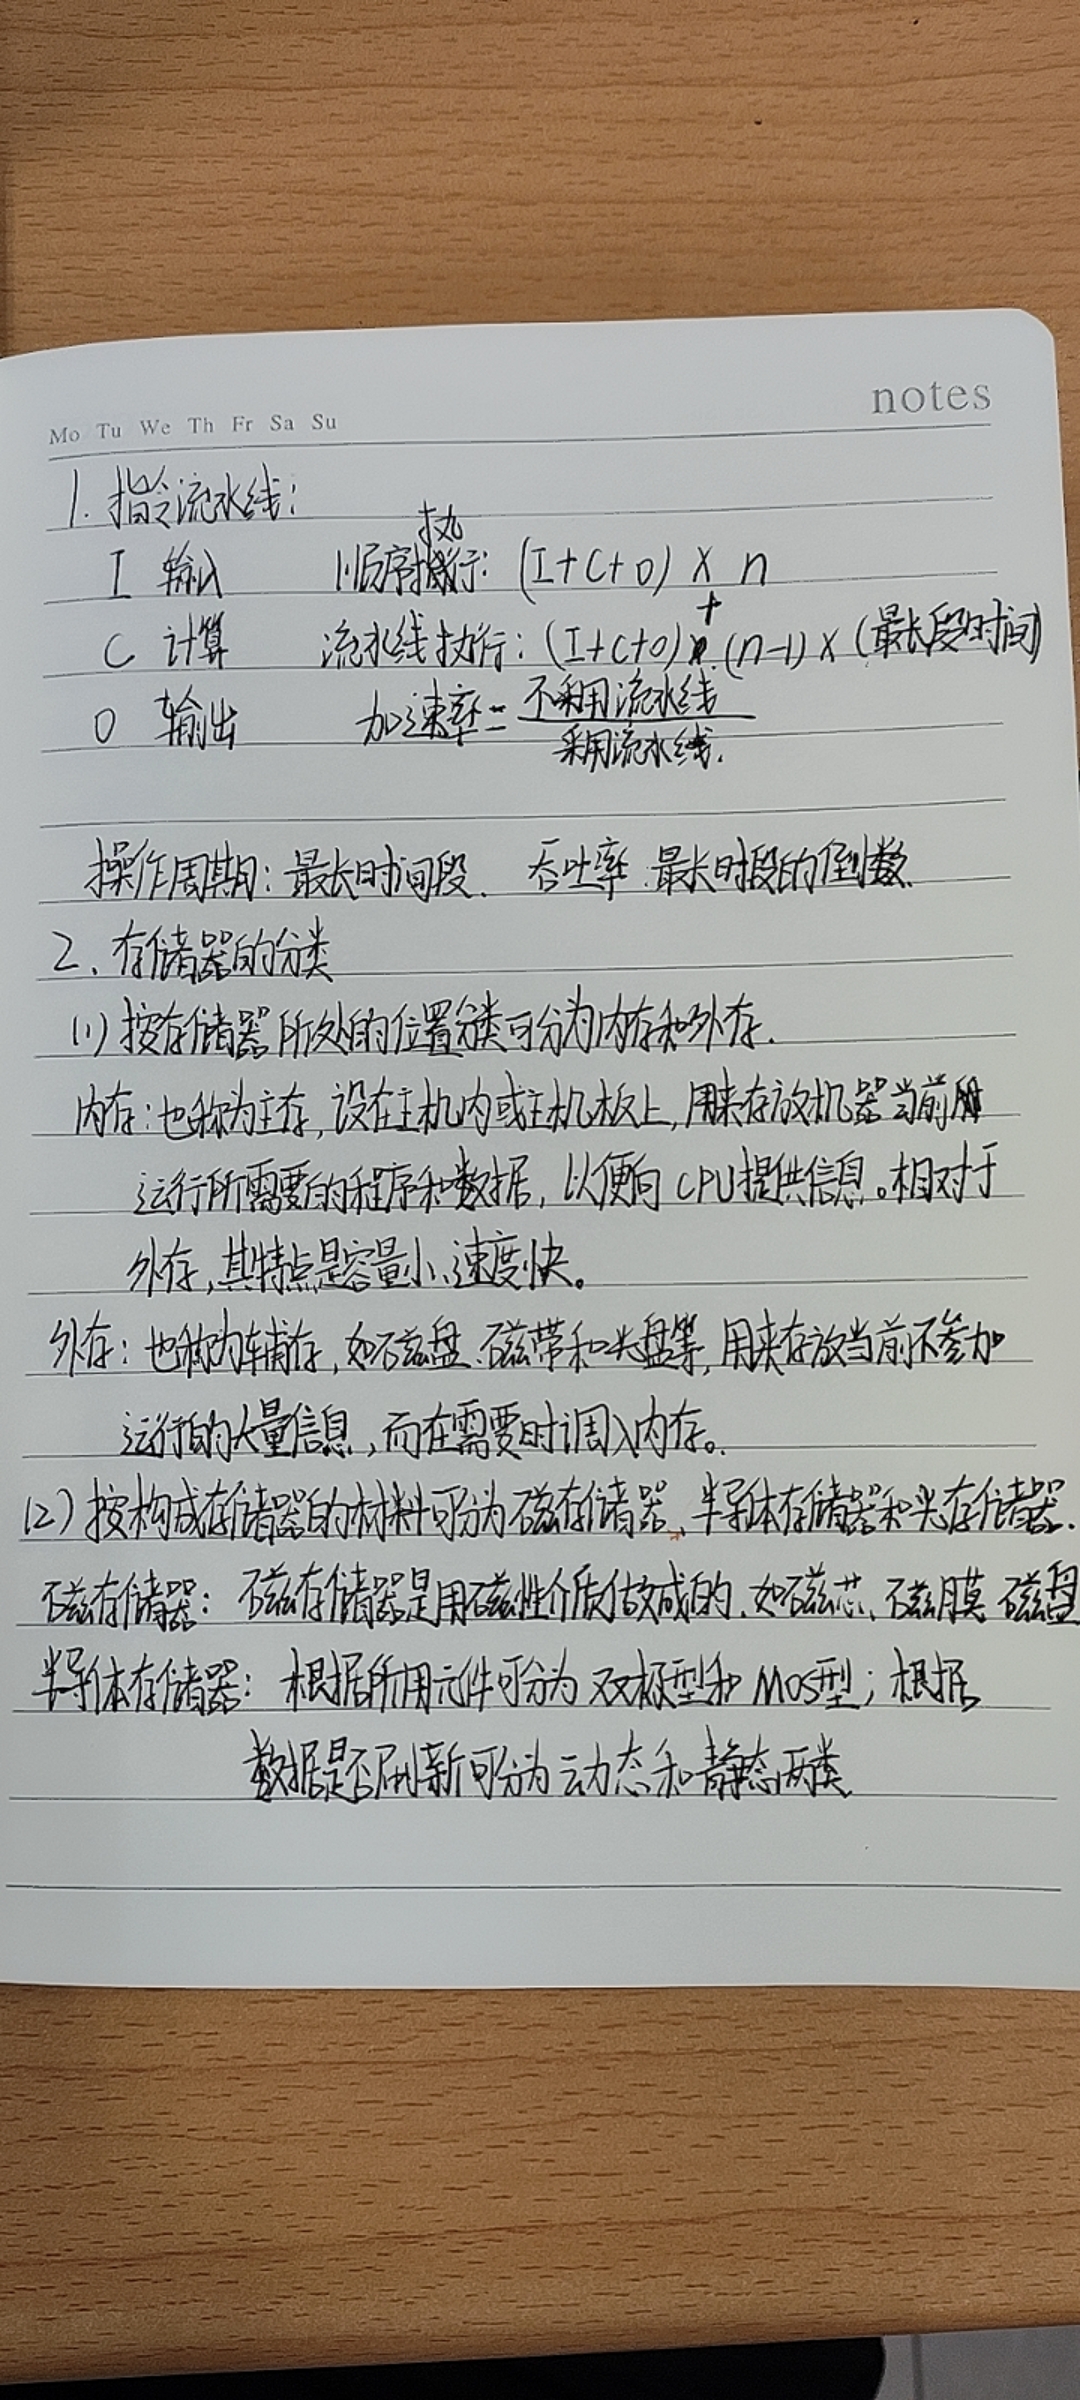 notes
Mo Tu We Th Fr Sa Su
1. 指令流水线:
I 输入 顺序执行: (I+C+O) × n
C 计算 流水线执行: (I+C+O) + (n-1) × (最长段时间)
O 输出 加速率 = 不采用流水线
采用流水线.
操作周期: 最长时间段. 吞吐率 最长时段的倒数.
2. 存储器的分类
(1) 按存储器所处的位置分类可分为内存和外存.
内存: 也称为主存, 设在主机内或主机板上, 用来存放机器当前
运行所需要的程序和数据, 以便向CPU提供信息。相对于
外存, 其特点是容量小、速度快。
外存: 也称为辅存, 如磁盘、磁带和光盘等, 用来存放当前不参加
运行的大量信息, 而在需要时调入内存。
(2) 按构成存储器的材料可分为磁存储器、半导体存储器和光存储器.
磁存储器: 磁存储器是用磁性介质做成的, 如磁芯、磁膜 磁盘
半导体存储器: 根据所用元件可分为双极型和MOS型; 根据
数据是否刷新可分为动态和静态两类.